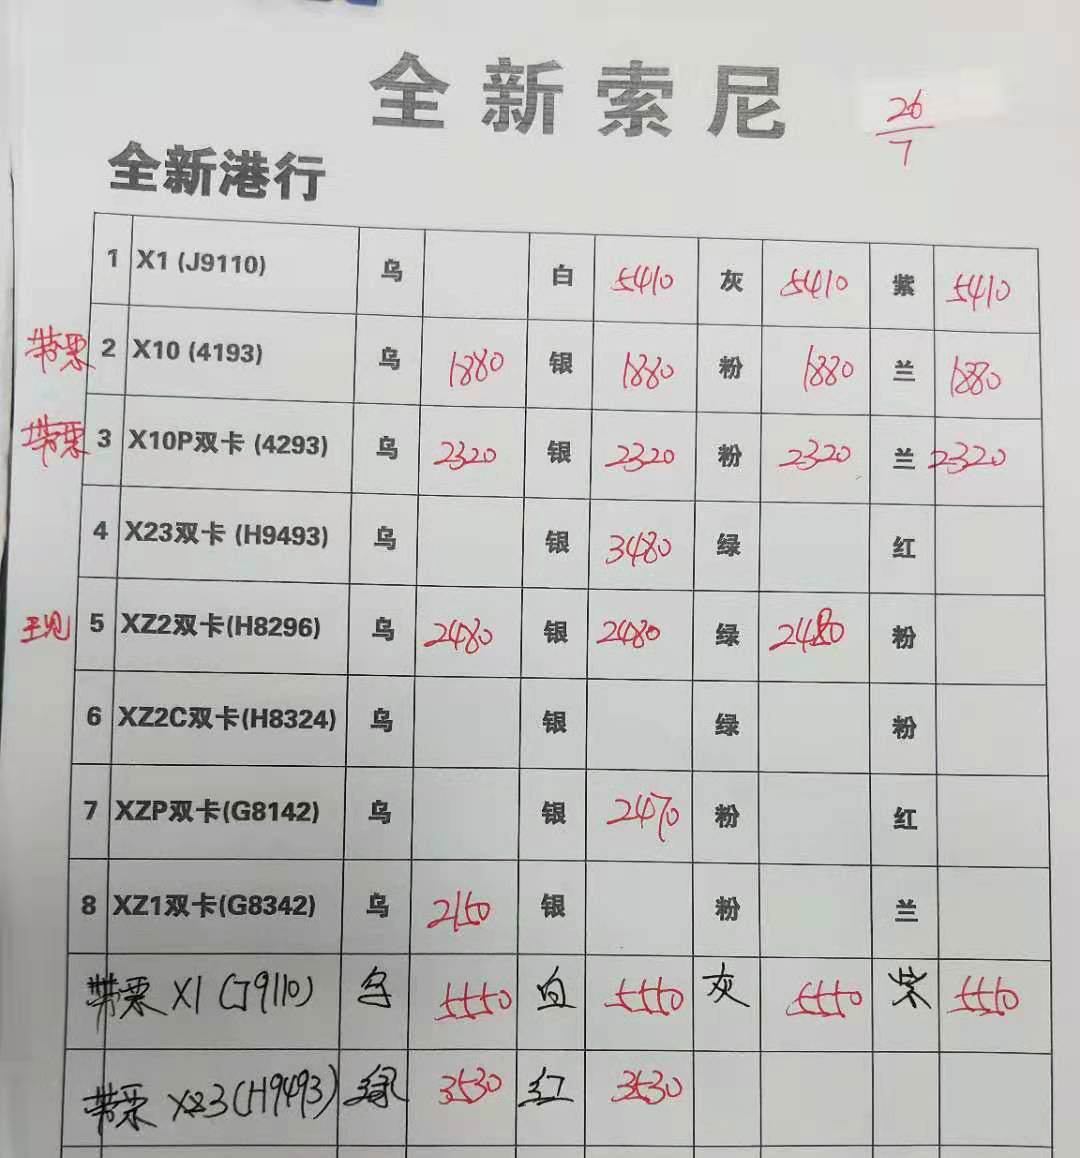 全新索尼
26/7
全新港行
1 X1 (J9110) 乌 白 5410 灰 5410 紫 5410
带票 2 X10 (4193) 乌 1880 银 1880 粉 1880 兰 1880
带票 3 X10P双卡 (4293) 乌 2320 银 2320 粉 2320 兰 2320
4 X23双卡 (H9493) 乌 银 3480 绿 红
5 XZ2双卡(H8296) 乌 2480 银 2480 绿 2480 粉
6 XZ2C双卡(H8324) 乌 银 绿 粉
7 XZP双卡(G8142) 乌 银 2470 粉 红
8 XZ1双卡(G8342) 乌 2150 银 粉 兰
带票 X1 (J9110) 乌 5550 白 5550 灰 5550 紫 5550
带票 XZ3 (H9493) 绿 3530 红 3530